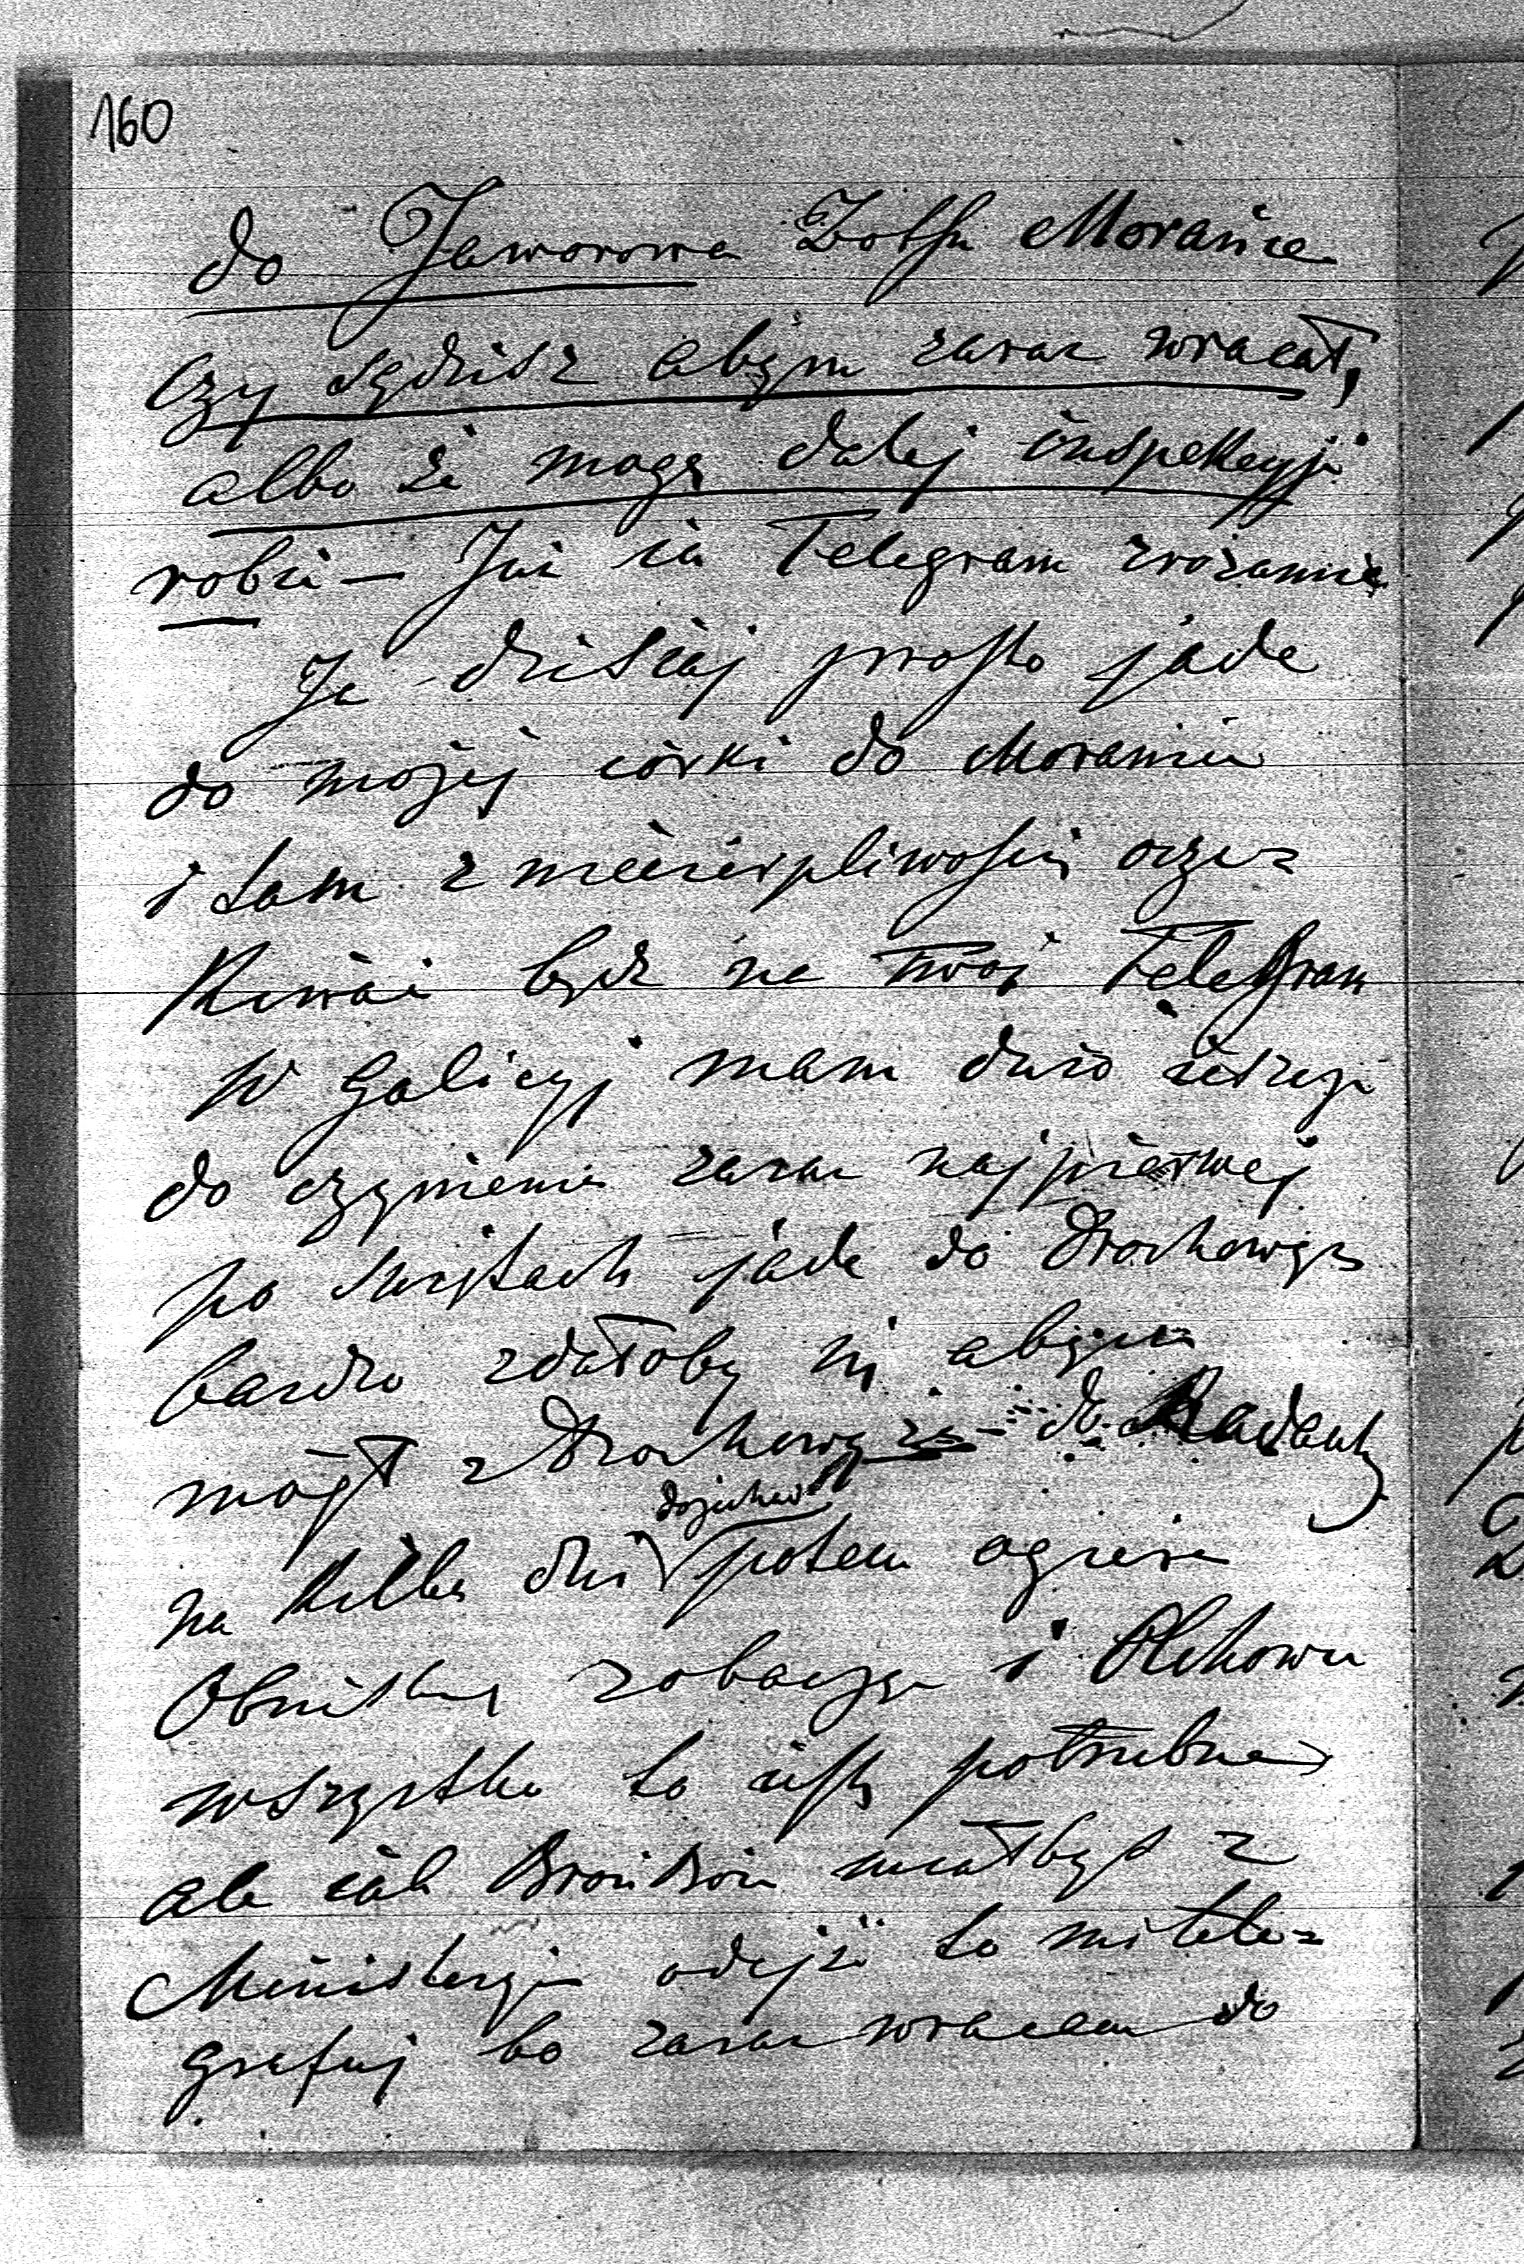 160
do Jaworowa Morańca
czy sądzisz abym zaraz wracał,
albo że mogę dalej inspekcyji
robić — Telegram zrozumię
Ja dzisiaj prosto jade
do mojej córki do Morańca
i tam z niecierpliwością ocze=
kiwać będę na twój Telegram
W Galicyj mam dużo
do czynienia zaraz najpierwej
po świętach jade do Drohowyż
bardzo zdałoby się abym
mógł z Drohowyża do Radautz
dojechać
na kilka dni potem ogiera
zobaczyć i Olchowu
wszystko to jest potrzebne
ale jak miałbyś z
Ministeryj odejść to mi tele=
grafuj bo zaraz wracam do